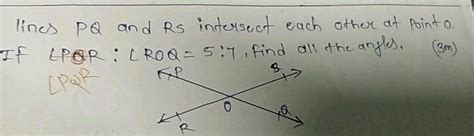 lines PQ and RS intersect each other at point O.
If ∠POR : ∠ROQ = 5:7, find all the angles. (3m)
∠POR
P
S
O
R
Q